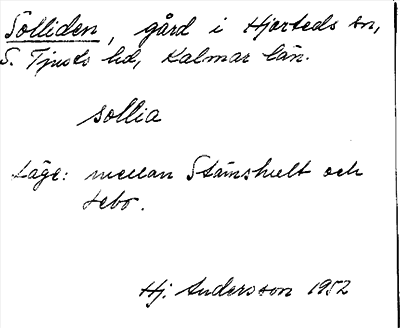 Solliden, gård i Hjorteds sn,
S. Tjusts hd, Kalmar län.
sollia
Läge: mellan Stämshult och
Hj. Andersson 1952